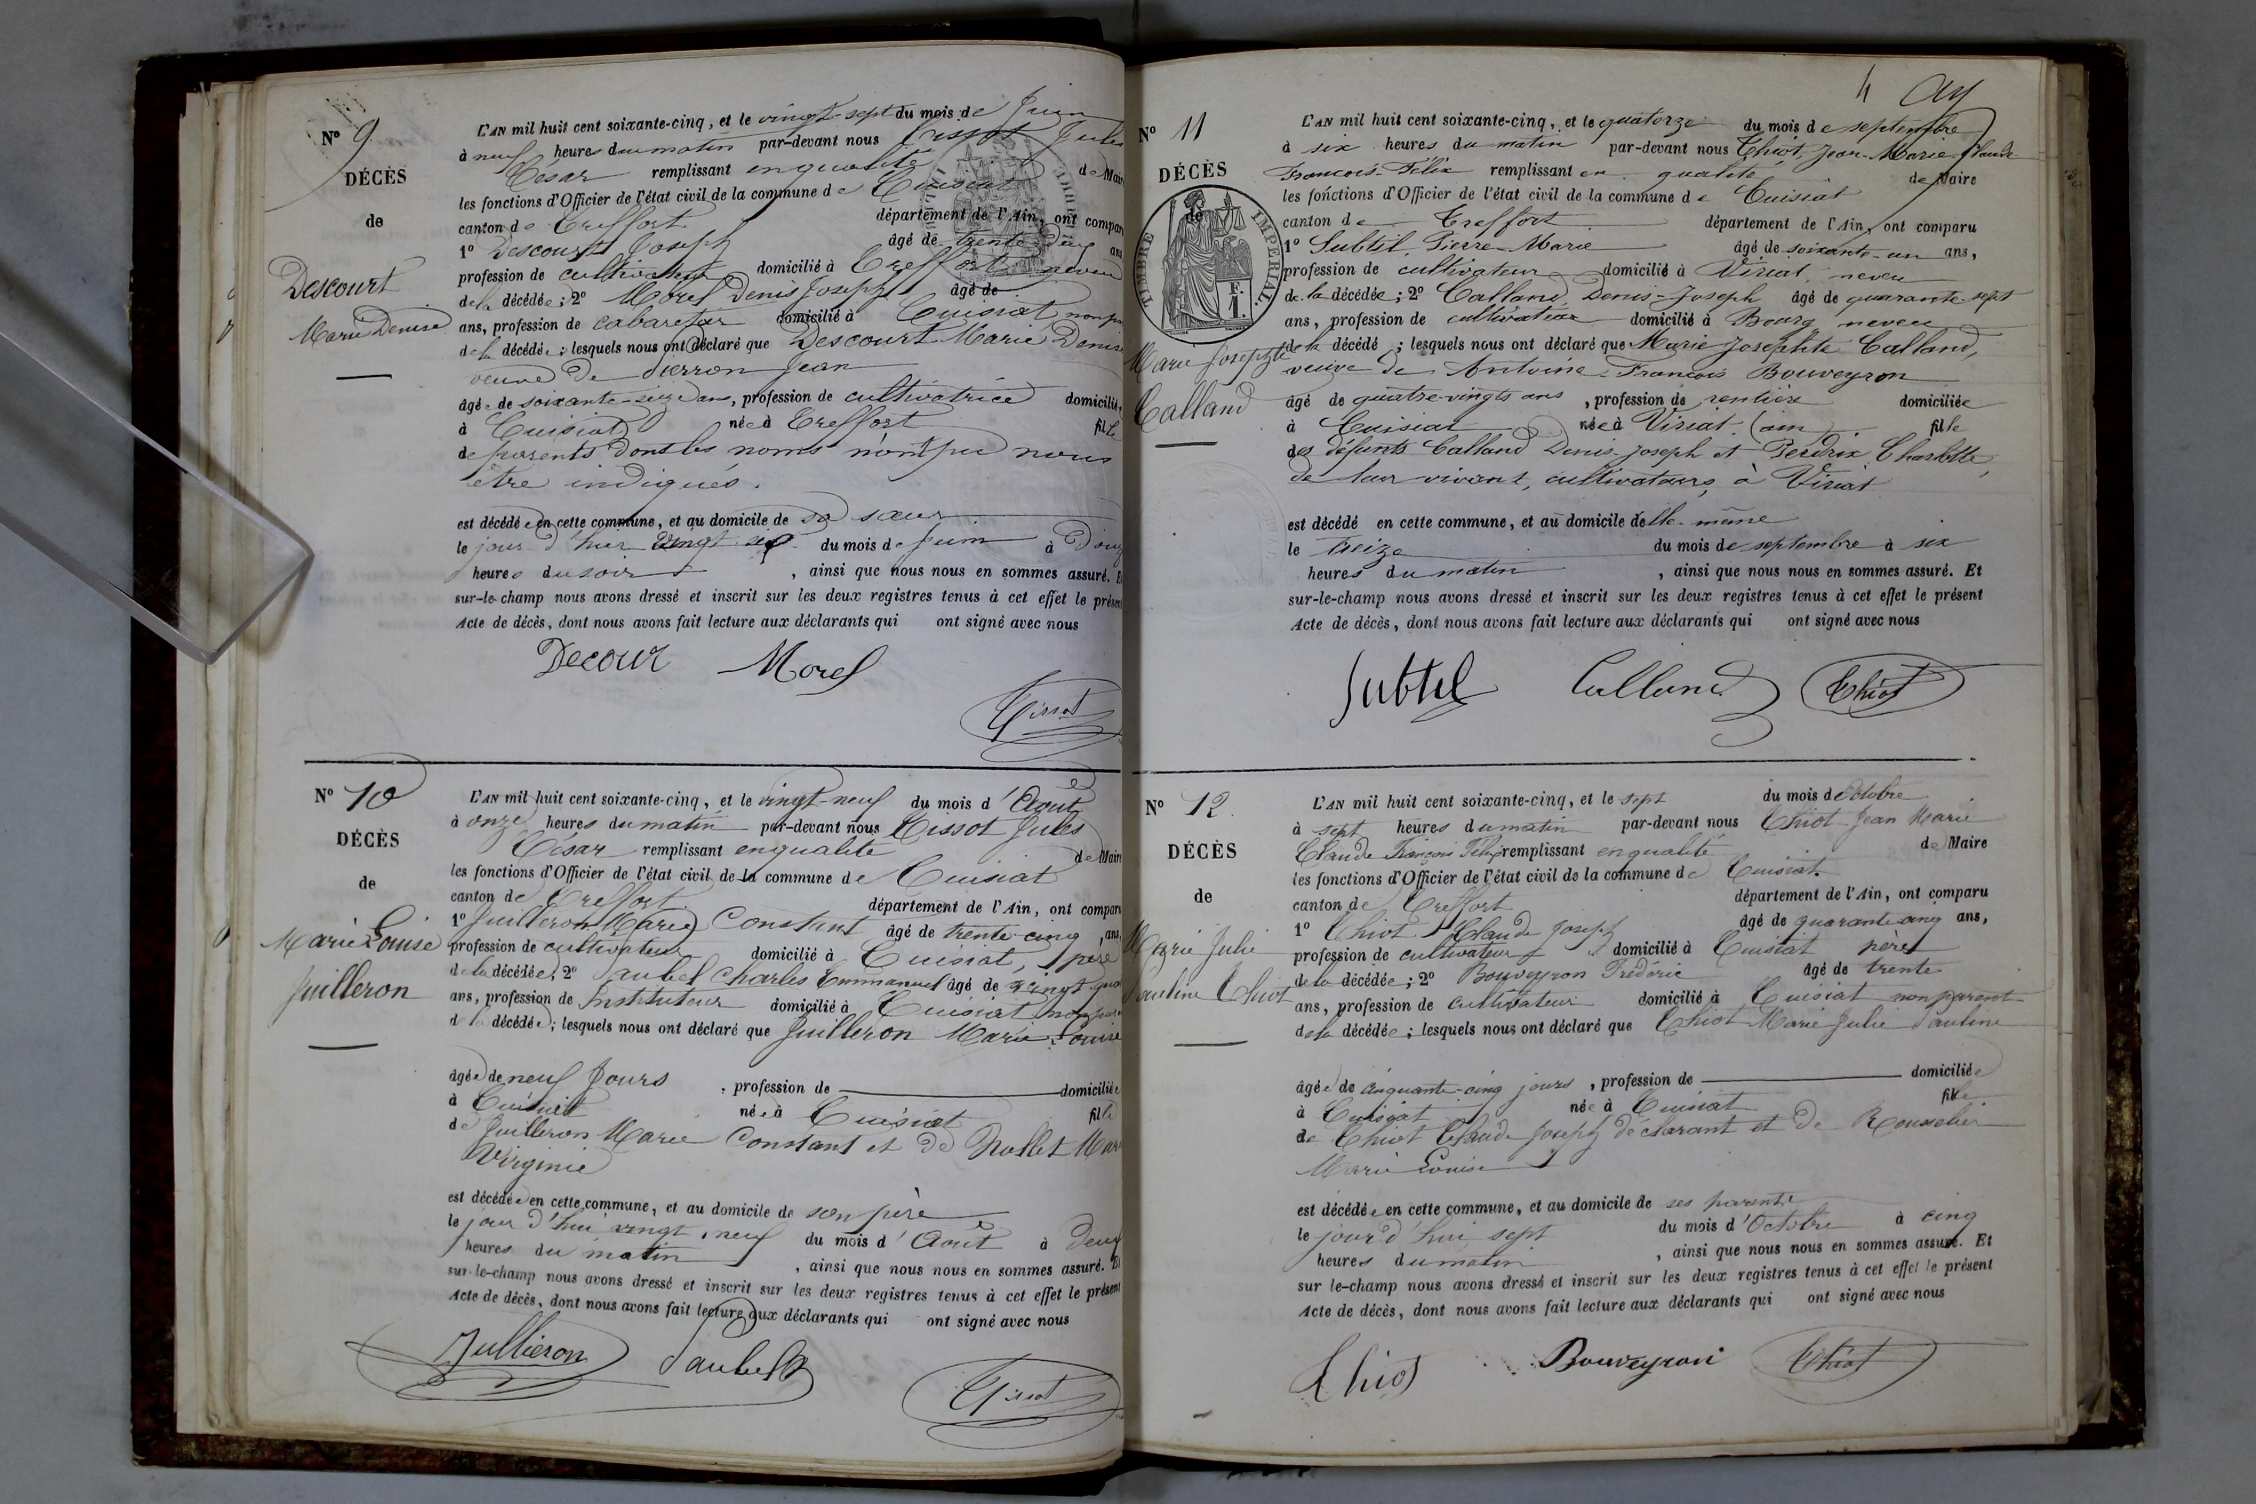 N° 9
DÉCÈS
de
Descourt
Marie Denise
L'AN mil huit cent soixante-cinq, et le vingt-sept du mois de Juin
à neuf heures du matin par-devant nous Tissot Jules
César remplissant en qualité de Mair
les fonctions d'Officier de l'état civil de la commune de Cuisiat
canton de Treffort département de l'Ain, ont compar
1° Descourt Joseph âgé de trente ans
profession de cultivateur domicilié à Treffort neveu
de la décédée; 2° Morel Denis Joseph âgé de
ans, profession de cabaretier domicilié à Cuisiat non
de la décédée; lesquels nous ont déclaré que Descourt Marie Denise
veuve de Pierron Jean
âgée de soixante-seize ans, profession de cultivatrice domiciliée
à Cuisiat née à Treffort fille
de parents dont les noms n'ont pu nous
être indiqués.
est décédée en cette commune, et au domicile de sa sœur
le jour d'hier vingt six du mois de juin à
heures du soir, ainsi que nous nous en sommes assuré. Et
sur-le-champ nous avons dressé et inscrit sur les deux registres tenus à cet effet le présent
Acte de décès, dont nous avons fait lecture aux déclarants qui ont signé avec nous
Decour Morel
Tissot
N° 10
DÉCÈS
de
Marie Louise
Juilleron
L'AN mil huit cent soixante-cinq, et le vingt-neuf du mois d'Août
à onze heures du matin par-devant nous Tissot Jules
César remplissant en qualité de Maire
les fonctions d'Officier de l'état civil de la commune de Cuisiat
canton de Treffort département de l'Ain, ont comparu
1° Juilleron Marie Constant âgé de trente-cinq ans,
profession de cultivateur domicilié à Cuisiat, père
de la décédée; 2° Saubel Charles Emmanuel âgé de vingt
ans, profession de Instituteur domicilié à Cuisiat non
de la décédée; lesquels nous ont déclaré que Juilleron Marie-Louise
âgée de neuf Jours, profession de domiciliée
à Cuisiat née à Cuisiat fille
de Juilleron Marie Constant et de Nollet Mari
Virginie
est décédée en cette commune, et au domicile de son père
le jour d'hui vingt-neuf du mois d'Août à deux
heures du matin, ainsi que nous nous en sommes assuré. Et
sur-le-champ nous avons dressé et inscrit sur les deux registres tenus à cet effet le présent
Acte de décès, dont nous avons fait lecture aux déclarants qui ont signé avec nous
Jullieron Saubel
Tissot
4
N° 11
DÉCÈS
de
TIMBRE IMPERIAL.
F.
1.
Marie Josephte
Calland
L'AN mil huit cent soixante-cinq, et le quatorze du mois de septembre
à six heures du matin par-devant nous Thiot, Jean-Marie-Claude
François-Félix remplissant en qualité de Maire
les fonctions d'Officier de l'état civil de la commune de Cuisiat
canton de Treffort département de l'Ain, ont comparu
1° Subtil, Pierre-Marie âgé de soixante-un ans,
profession de cultivateur domicilié à Viriat neveu
de la décédée; 2° Calland, Denis-Joseph âgé de quarante-sept
ans, profession de cultivateur domicilié à Bourg neveu
de la décédé; lesquels nous ont déclaré que Marie Josephte Calland,
veuve de Antoine-François Bouveyron
âgé de quatre-vingts ans, profession de rentière domiciliée
à Cuisiat née à Viriat (ain) fille
des défunts Calland Denis-Joseph et Perdrix Charlotte,
de leur vivant, cultivateurs, à Viriat
est décédé en cette commune, et au domicile d'elle-même
le treize du mois de septembre à six
heures du matin, ainsi que nous nous en sommes assuré. Et
sur-le-champ nous avons dressé et inscrit sur les deux registres tenus à cet effet le présent
Acte de décès, dont nous avons fait lecture aux déclarants qui ont signé avec nous
Subtil Calland Thiot
N° 12
DÉCÈS
de
Marie Julie
Pauline Thiot
L'AN mil huit cent soixante-cinq, et le sept du mois d'Octobre
à sept heures du matin par-devant nous Thiot Jean Marie
Claude François Félix remplissant en qualité de Maire
les fonctions d'Officier de l'état civil de la commune de Cuisiat
canton de Treffort département de l'Ain, ont comparu
1° Thiot Claude Joseph âgé de quarante-cinq ans,
profession de cultivateur domicilié à Cuisiat père
de la décédée; 2° Bouveyron Frédéric âgé de trente
ans, profession de cultivateur domicilié à Cuisiat non parent
de la décédée; lesquels nous ont déclaré que Thiot Marie Julie Pauline
âgée de cinquante-cinq jours, profession de domiciliée
à Cuisiat née à Cuisiat fille
de Thiot Claude Joseph déclarant et de Rousselier
Marie Louise
est décédée en cette commune, et au domicile de ses parents
le jour d'hui sept du mois d'Octobre à cinq
heures du matin, ainsi que nous nous en sommes assuré. Et
sur le-champ nous avons dressé et inscrit sur les deux registres tenus à cet effet le présent
Acte de décès, dont nous avons fait lecture aux déclarants qui ont signé avec nous
Thiot Bouveyron Thiot